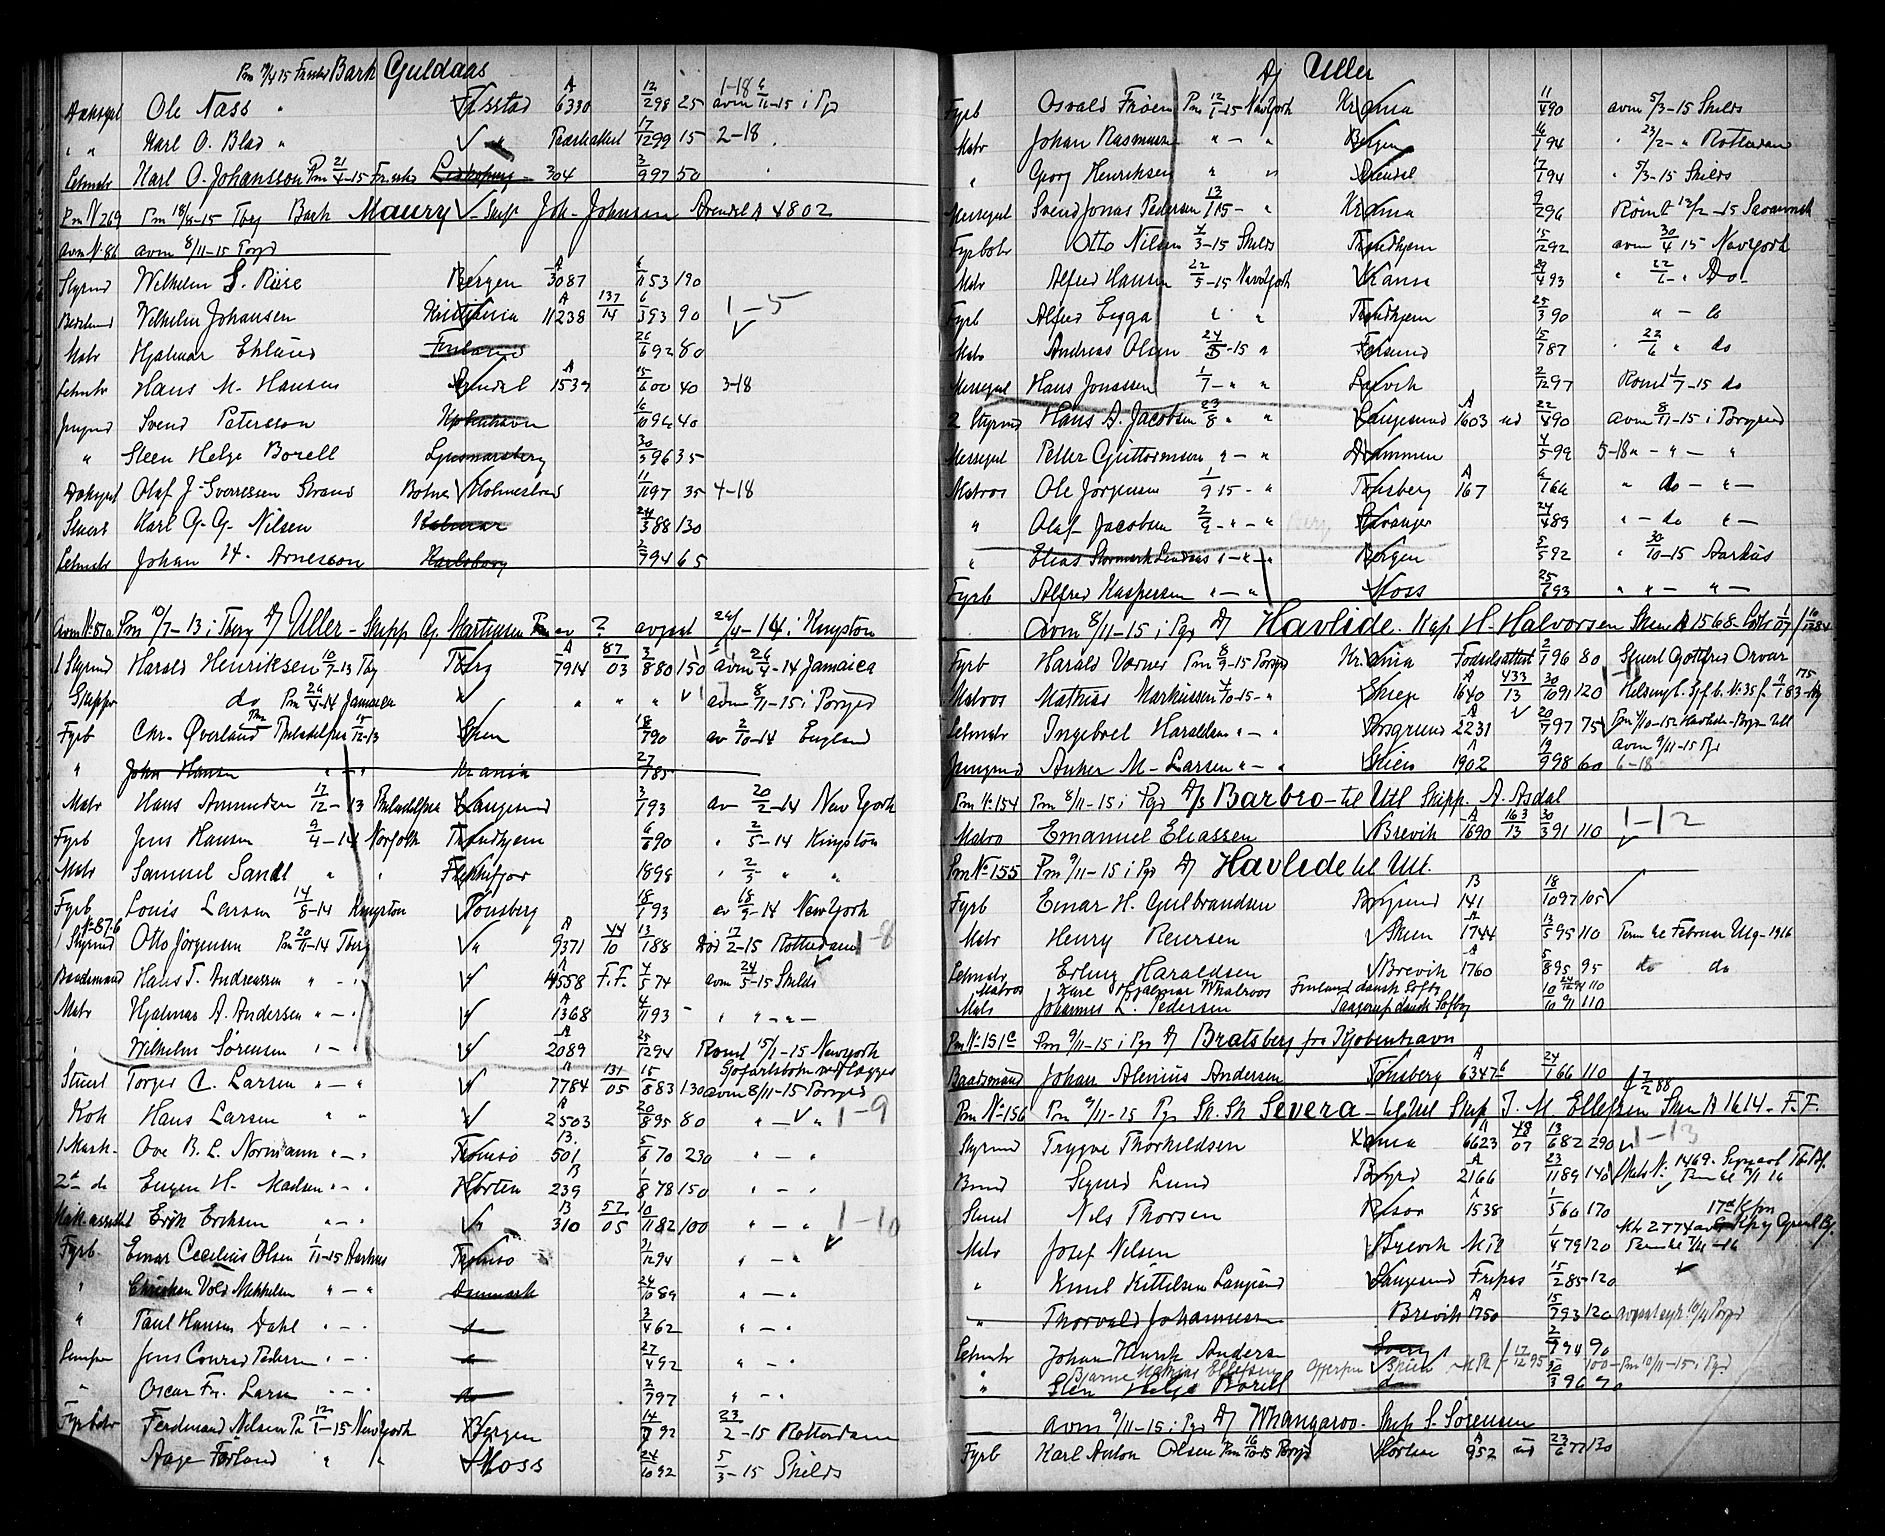 Pm 17/4 15 Fr.stad Bark Guldaas
Dæksgut Ole Næss " Tysstad A 6330 12/2 98 25 1-18 avm 6/11-15 i Pgr
" " Karl O. Blad " " 17/12 99 15 2-18
Letmatr Karl O. Johansson Pm 21/4-15 Fr.stad 304 3/9 97 50
Pm N 269 Pm 18/8-15 Tbrg Bark Maury - Skip. Joh. Johnsen Arendal A 4802
avm N. 86 avm 8/11-15 Porgr
Styrmd Wilhelm S. Riise Bergen A 3087 6/11 53 190
Bestmd Vilhelm Johansen Kristiania A 11238 137/14 6/3 93 90 1-5
Matr Hjalmar Eklund Finland 26/6 92 80
Letmatr Hans M. Hansen Arendal A 1539 15/6 00 40 3-18
Jungmd Svend Petersson Kobenhavn 16/10 94 40
" Steen Helge Borell Ljusnarsberg 30/3 96 35
Dæksgut Olaf J. Sverresen Strand Botne Holmestrand 11/11 97 35 4-18
Stuert Karl G. G. Nilsen Kalmar 24/3 88 130
Letmatr Johan H. Arnesson Karlsborg 2/7 94 65
Avm N. 87a Pm 10/7-13 i Tbrg D/ Uller - Skipp G. Martinsen av ? avgaat 26/4-14. Kingston
1 Styrmd Harald Henriksen 10/7-13 Tbg Tbrg A 7914 87/03 3/8 80 150 avm 26/4-14 Jamaica
Skipper do Pm 26/4-14 Jamaica " " " " avm 8/11-15 i Porgrd
Fyrb Chr. Øverland Philadelfia 15/12-13 Skien 18/7 90 av 2/10-14 England
" John Hansen " - " Krania 27/7 85
Matr Hans Amundsen 17/12-13 Philadelfia Langesund 3/1 93 av 20/2-14 New York
Fyrb Jens Hansen 9/4-14 Norfolk Trondhjem 6/6 90 " 2/5-14 Kingston
Matr Samuel Sandl " " Flekkefjor 1898 " 2/5 " "
Fyrb Louis Larsen 14/8-14 Kingston Tonsberg 18/1 93 av 18/9-14 New York
N-87-6
1 Styrmd Otto Jörgensen Pm 20/11-14 Tbrg " A 9371 44/10 13/1 88 Död 17/2-15 Rotterdam 1-8
Baadsmand Hans T. Andreassen " - " " A 4558 F.F. 4/5 74 avm 24/5-15 Shilds
Matr Hjalmar A. Andersen " - " " A 1368 4/11 93 - " " - " -
" Wilhelm Sörensen " - " " A 2089 25/12 94 Römt 15/1-15 New York
Stuert Torger C. Larsen " - " " A 7784 131/05 15/8 83 130 avm 8/11-15 Porgrs
Kok Hans Larsen " " " A 2503 20/8 95 80 " - " 1-9
1 Mask. Ove B. L. Normann " - " Tromsö B. 501 5/6 70 230 " - "
2 de do Eugen H. Madsen " - " Horten B 239 1/8 78 150 " - "
Mask.assistent Erik Eriksen " - " " B 310 57/05 10/11 82 100 " - " 1-10
Fyrb. Einar Cecilius Olsen 1/11-15 Aarhus Tromsö 31/12 94 " - "
" Christian Vold Mikkelsen " - " Danmark 24/10 89 " - "
" Paul Hansen Dahl " - " do 3/4 62 " - "
Lemper Jens Conrad Pedersen " - " do 27/4 92 " - "
" Oscar Fr. Larsen " - " do 2/7 97 " - "
Fyrbøtr Ferdinand Nilsen Pm 12/1-15 New York Bergen 14/7 92 23/2-15 Rotterdam
Aage Förland " " Moss 24/10 92 5/3-15 Shilds
D/ Uller
Fyrb Osvald Fröen Pm 12/1-15 New York Kr.ania 11/4 90 avm 5/3-15 Shilds
Matr Johan Rasmussen " - " Bergen 16/1 94 " 23/2- " Rotterdam
" Georg Henriksen " " Arendal 17/1 94 " 5/3-15 Shilds
Messegut Svend Jonas Pedersen 13/1 15- " Kr.ania 9/2 96 Römt 12/2-15 Savannah
Fyrbötr Otto Nilsen 4/3-15 Shilds Trondhjem 15/12 92 avm 30/4 15 New York
Matr Alfred Hansen 22/5-15 New York Krania 30/4 93 " 22/6- " Do-
Fyrb Alfred Eggа " " Trondhjem 25/3 90 " - do
Matr Andreas Olsen 24/5-15 " Farsund 15/7 87 " 22/6 " do
Messegut Hans Jonassen 1/7- " " Larvik 2/12 97 Römt 1/7-15 do
2 Styrmd Hans A. Jacobsen 23/8 " " Langesund A 1603 ud 22/4 90 avm 8/11-15 i Porgrund
Messegut Petter Guttormsen " - " Drammen 4/5 99 5-18 " - " - "
Matros Ole Jørgensen 1/9 15- " Tönsberg A 167 6/1 64 " do - " -
" Olaf Jacobsen 2/9- " - " Stavanger 24/4 89 " - do " -
" Elias Stormark Lindaas " - " - " Bergen 5/5 92 " 30/10-15 Aarhus
Fyrb Alfred Kaspersen " - " Moss 25/6 93 " " - " -
Avm 8/11-15 i Pgr D/ Havlide. Kap. H. Halvorsen Skien A 1568
Fyrb Harald Værner Pm 8/9-15 Porgrd Kr.ania Fodselsattest 2/1 96 80 Stuert Gottfred Orvar
Matros Mathias Markussen 4/10-15- " Skien A 1640 433/13 30/10 91 120
Letmatr Ingebret Haraldsen " - " Porsgrund A 2231 20/7 97 75
Jungmd Anker M. Larsen " - " Skien A 1902 19/9 98 60 avm 9/11-15 Pgr 6-18
Pm N. 154 Pm 8/11-15 i Pgr D/s Barbro - til Utl Skipp. A. Asdal
Matro Emanuel Eliassen Brevik A 1690 163/13 30/3 91 110 1-12
Pm No 155 Pm 9/11-15 i Pgr D/ Havlide til Utl.
Fyrb Einar H. Gulbrandsen Porsgrund B 141 18/10 97 105
Matr Henry Reiersen Skien A 1744 13/5 95 110 Perm til Februar Utg-1916
Letmatr Erling Haraldsen Brevik A 1760 5/8 95 95 do do
Matros Kare Hjalmar Whalroos Finland dansk Söfb 10 24/12 91 110
Matr Johannes L. Pedersen Taagerup dansk Söfbog 10/10 91 110
Pm N. 151c Pm 9/11-15 i Pgr D/ Bratsberg fra Kjobenhavn
Baadsmand Johan Alenius Andersen Tönsberg A 6347 24/1 66 110
Pm N. 156 Pm 9/11-15 Pgr Sk. Sk. Severa - til Utl Skip J. M. Ellefsen Skien A 1614. F.F.
Styrmd Trygve Thorkildsen Krania A 6623 48/07 13/6 82 290 1-13
Bmd Sigurd Lund Porsgrd A 2166 23/11 89 140
Stuert Nils Thorsen Risör A 1538 1/5 60 170
Matr Josef Nilsen Brevik Mil 1/4 79 120
" Knut Kittelsen Langsund Langesund Fripas 15/2 85 120
" Thorvald Johannessen Brevik A 1750 15/7 93 120
Letmatr Johan Henrik Anders Sverg 2/7 94 90
Bjarne Mathias Ellefsen Gjerpen Skien 17/12 95 100 - Pm 10/11-15 i Pgr
" Sten Helge Borell do 30/3 96 70
avm 9/11-15 i Pgr D/ Whangaroo. Skip S. Sörensen
Fyrb Karl Anton Olsen Pm 16/10-15 Porgrd Horten A 952 ud 23/6 77 130